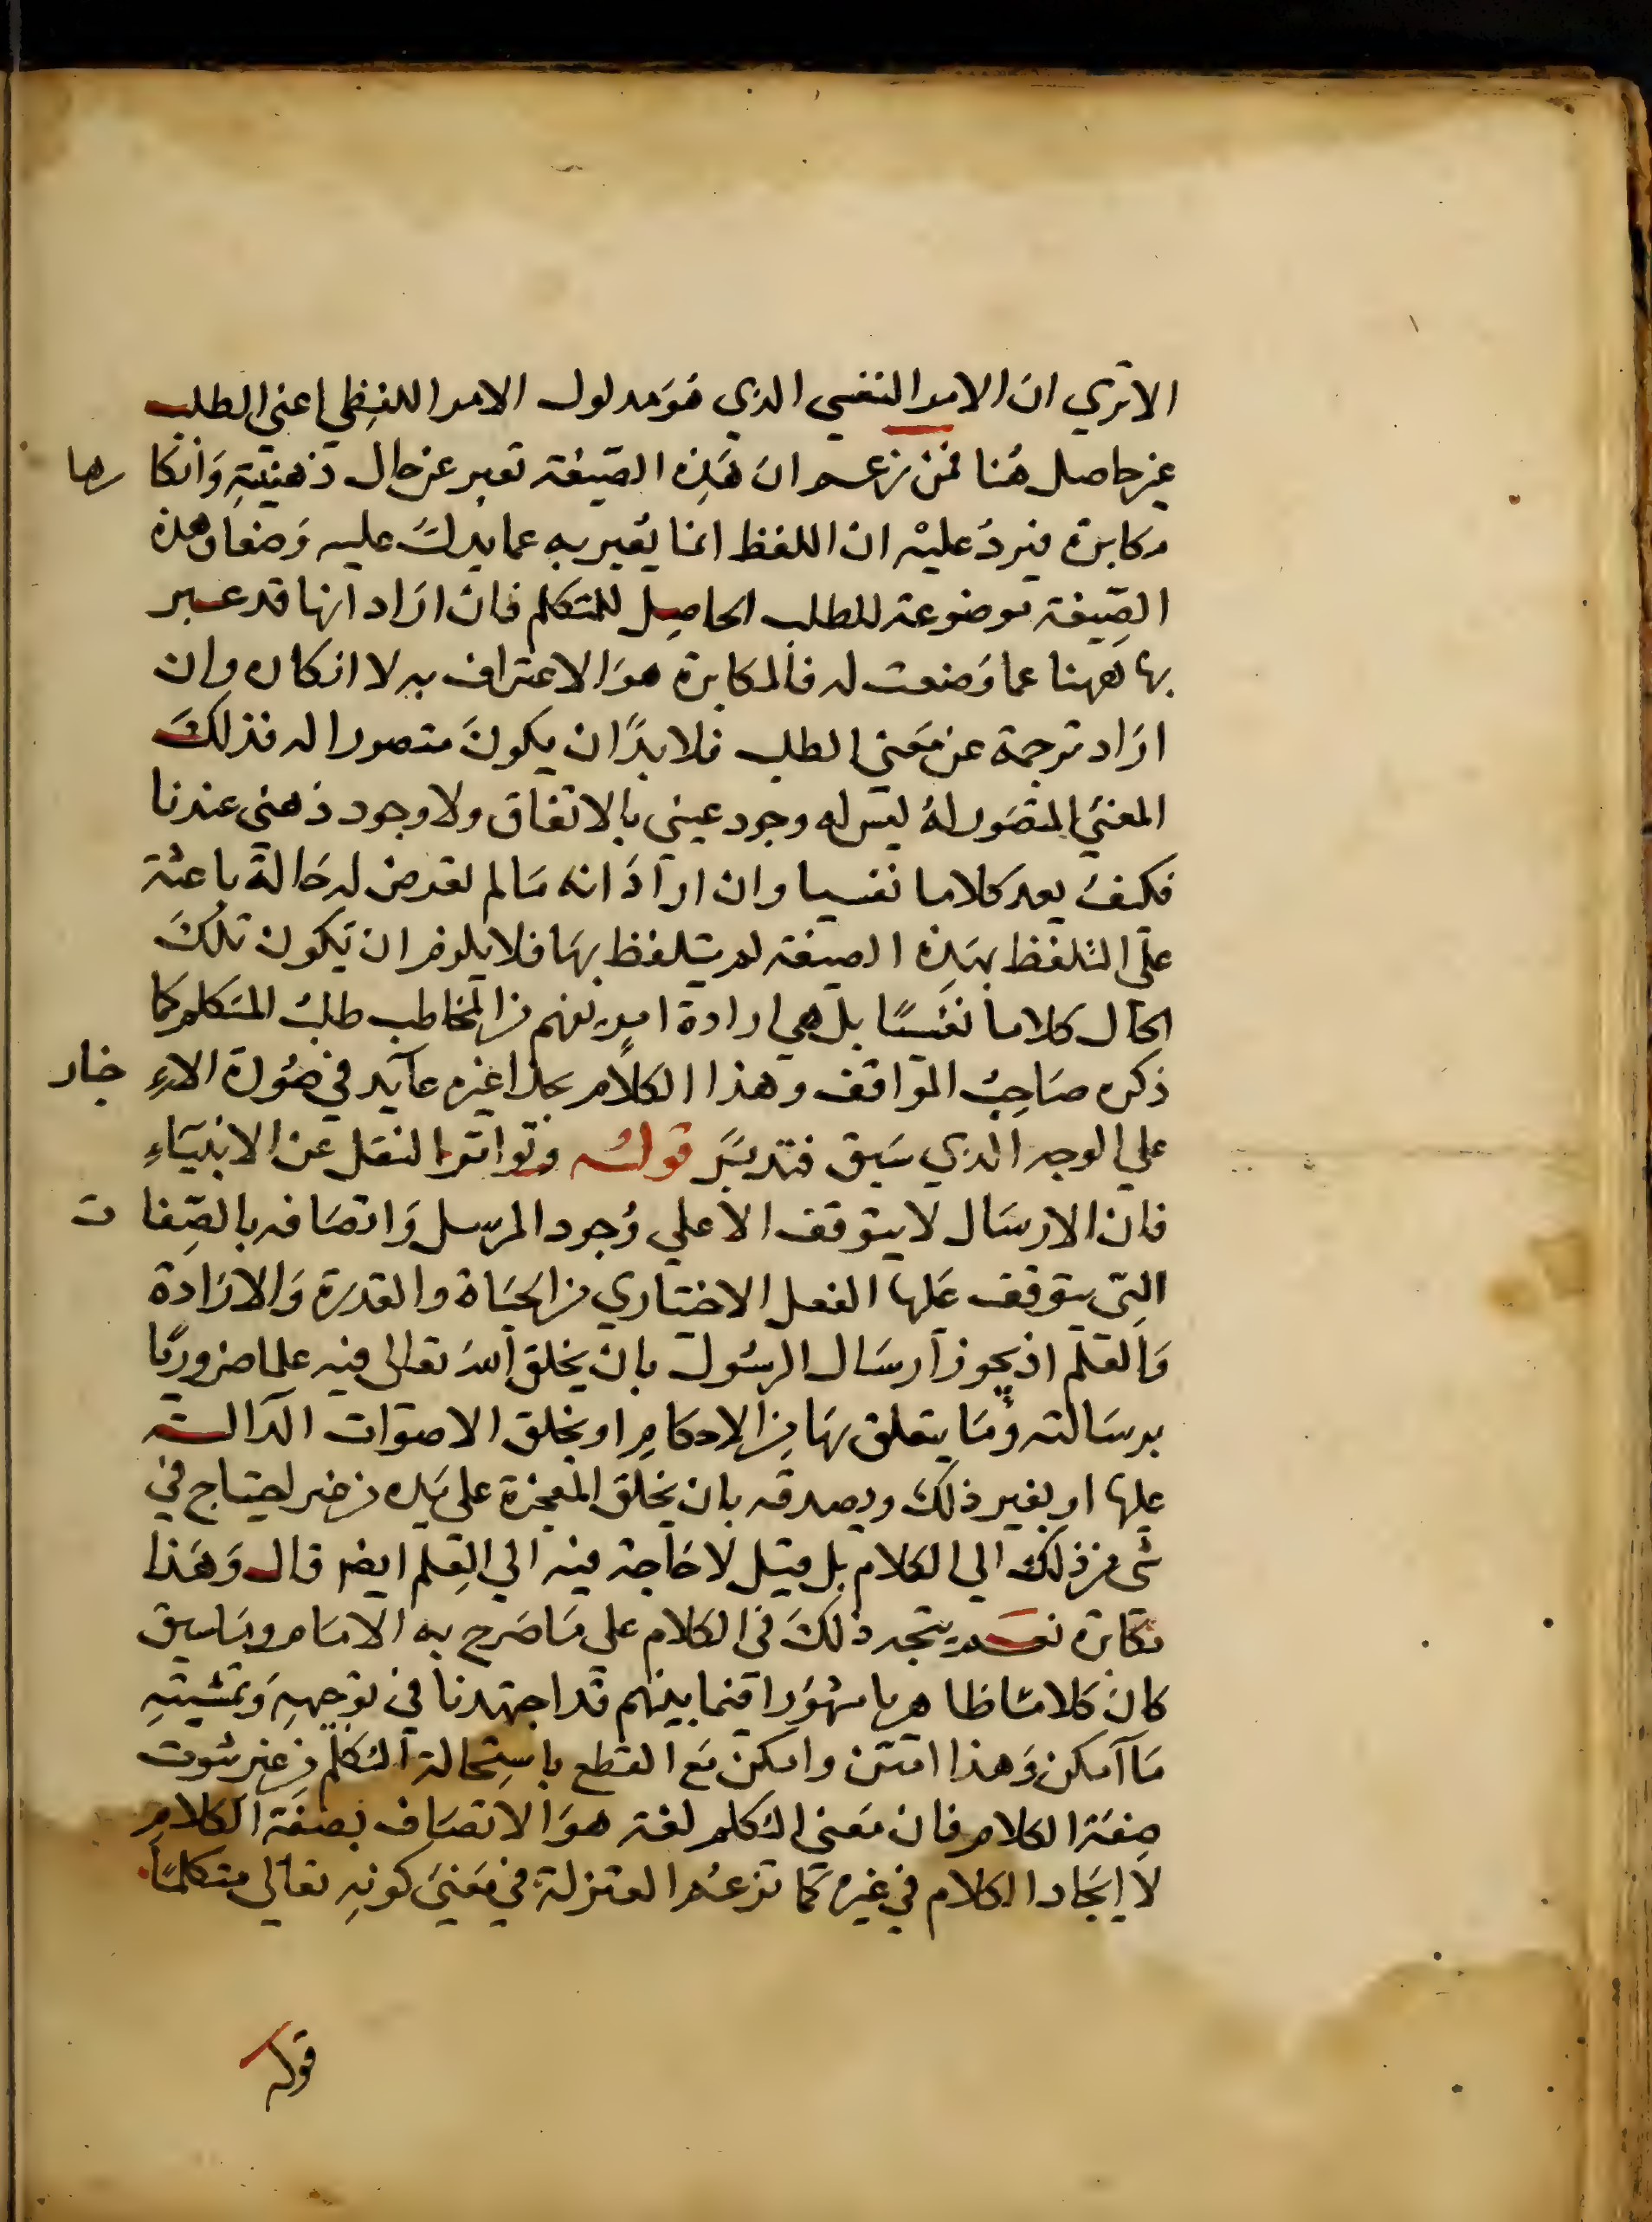 الا تري ان الامر النفسي الذي هو مدلول الامر اللفظي اعني الطلب
غير حاصل هنا فمن زعم ان هذه الصيغة تعبر عن حال ذهنية وانكا رها
مكابرة فيرد عليه ان اللفظ انما يعبر به عما يدل عليه وضعا وهذه
الصيغة موضوعة للطلب الحاصل للمتكلم فان اراد انها قد عبر
بها ههنا عما وضعت له فالمكابرة هو الاعتراف به لا انكاره وان
اراد ترجمة عن معني الطلب فلا بد ان يكون متصورا له فذلك
المعني المتصور له ليس له وجود عيني بالاتفاق ولا وجود ذهني عندنا
فكيف يعد كلاما نفسيا وان اراد انه ما لم تعرض له حالة باعثة
علي التلفظ بهذه الصيغة لم يتلفظ بها فلا يلزم ان يكون تلك
الحال كلاما نفسيا بل هي ارادة امر يفهم من المخاطب طلب المتكلم كما
ذكره صاحب المواقف وهذا الكلام بحذافيره عايد في صورة الا خبار
علي الوجه الذي سبق فتدبر قوله وتواتر النقل عن الانبياء
فان الارسال لا يتوقف الا علي وجود المرسل واتصافه بالصفا ت
التي يتوقف عليها الفعل الاختياري من الحياة والقدرة والارادة
والعلم اذ يجوز ارسال الرسول بان يخلق الله تعالى فيه علما ضروريا
برسالته وما يتعلق بها من الاحكام او يخلق الاصوات الدالة
عليها او بغير ذلك ويصدقه بان يخلق المعجزة على يده من غير احتياج في
شي من ذلك الي الكلام بل قيل لا حاجة فيه الي العلم ايضا قال وهذا
مكابرة نعم يتجه ذلك في الكلام على ما صرح به الامام وما سبق
كان كلاما ظاهريا مشهورا فيما بينهم قد اجتهدنا في توجيهه وتمشيته
ما امكن وهذا امتن وامكن مع القطع باستحالة التكلم من غير ثبوت
صفة الكلام فان معني التكلم لغة هو الاتصاف بصفة الكلام
لا ايجاد الكلام في غيره كما تزعم المعتزلة في معني كونه تعالي متكلما
قوله